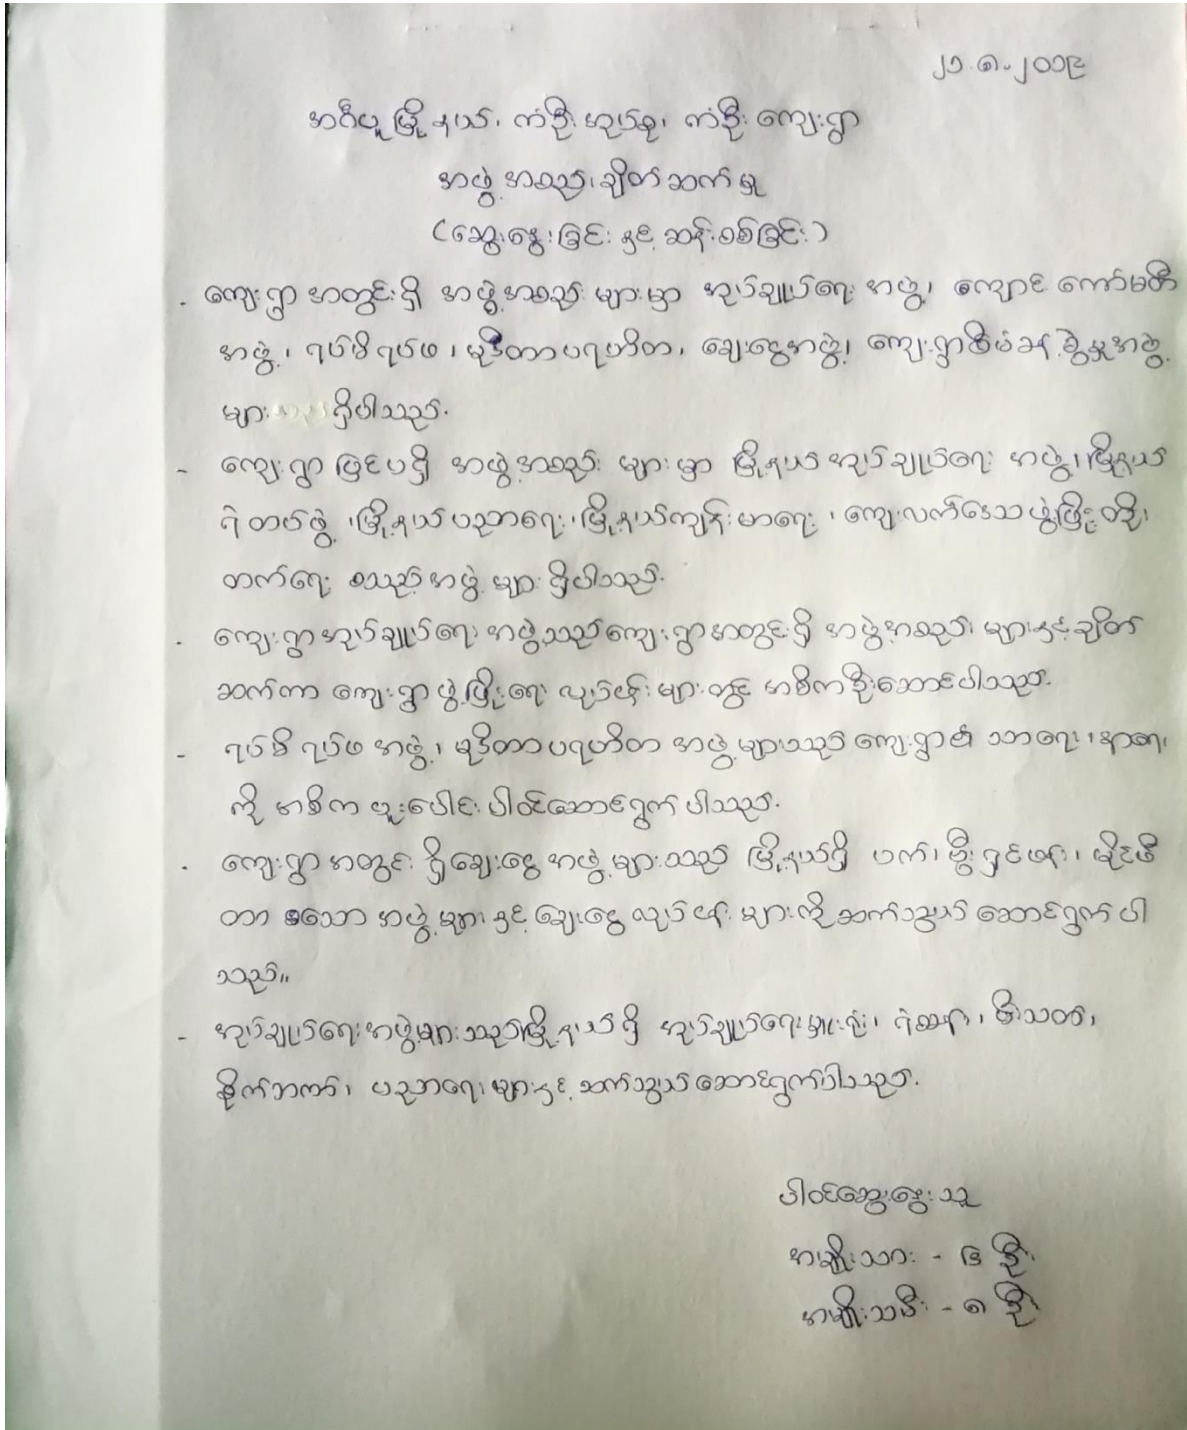 ၂၁.၈.၂၀၁၉
အင်္ဂပူမြို့နယ်၊ ကံဦးအုပ်စု၊ ကံဦးကျေးရွာ
အဖွဲ့အစည်းချိတ်ဆက်မှု
(ဆွေးနွေးခြင်းနှင့် ဆန်းစစ်ခြင်း)
- ကျေးရွာအတွင်းရှိ အဖွဲ့အစည်းများမှာ အုပ်ချုပ်ရေးအဖွဲ့၊ ကျောင်းကော်မတီ
အဖွဲ့၊ ရပ်မိရပ်ဖ၊ မုဒိတာပရဟိတ၊ ချေးငွေအဖွဲ့၊ ကျေးရွာစီမံခန့်ခွဲမှုအဖွဲ့
များ ရှိပါသည်.
- ကျေးရွာပြင်ပရှိ အဖွဲ့အစည်းများမှာ မြို့နယ်အုပ်ချုပ်ရေးအဖွဲ့၊ မြို့နယ်
ရဲတပ်ဖွဲ့၊ မြို့နယ်ပညာရေး၊ မြို့နယ်ကျန်းမာရေး၊ ကျေးလက်ဒေသဖွံ့ဖြိုးတိုး
တက်ရေး စသည့်အဖွဲ့များရှိပါသည်.
- ကျေးရွာအုပ်ချုပ်ရေးအဖွဲ့သည်ကျေးရွာအတွင်းရှိ အဖွဲ့အစည်းများနှင့်ချိတ်
ဆက်ကာ ကျေးရွာဖွံ့ဖြိုးရေးလုပ်ငန်းများတွင် အဓိကဦးဆောင်ပါသည်.
- ရပ်မိရပ်ဖအဖွဲ့၊ မုဒိတာပရဟိတအဖွဲ့များသည်ကျေးရွာ၏ သာရေး၊ နာရေး
ကို အဓိက ပူးပေါင်းပါဝင်ဆောင်ရွက်ပါသည်.
- ကျေးရွာအတွင်းရှိချေးငွေအဖွဲ့များသည် မြို့နယ်ရှိ ပက်၊ မွီးရှင်ဖန်း၊ မိုင်ဖီ
တာ စသောအဖွဲ့များနှင့်ချေးငွေလုပ်ငန်းများကိုဆက်သွယ်ဆောင်ရွက်ပါ
သည်။
- အုပ်ချုပ်ရေးအဖွဲ့များသည်မြို့နယ်ရှိ အုပ်ချုပ်ရေးမှူးရုံး၊ ရဲစခန်း၊ မီးသတ်၊
စိုက်ဘဏ်၊ ပညာရေးများနှင့်ဆက်သွယ်ဆောင်ရွက်ပါသည်.
ပါဝင်ဆွေးနွေးသူ
အမျိုးသား - ၆ ဦး
အမျိုးသမီး - ၈ ဦး